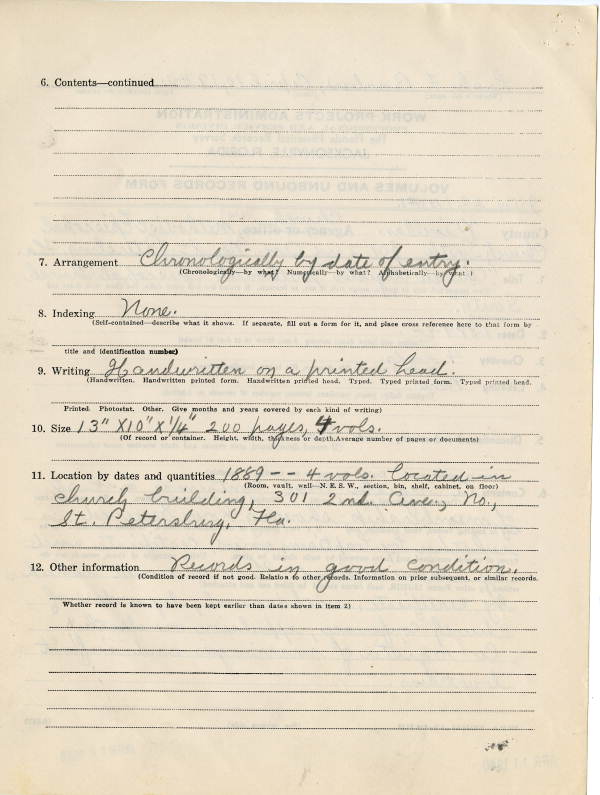 6. Contents—continued
7. Arrangement Chronologically by date of entry.
(Chronologically—by what? Numerically—by what? Alphabetically—by what?)
8. Indexing None.
(Self-contained—describe what it shows. If separate, fill out a form for it, and place cross reference here to that form by
title and identification number)
9. Writing Handwritten on a printed head.
(Handwritten. Handwritten printed form. Handwritten printed head. Typed. Typed printed form. Typed printed head.
Printed. Photostat. Other. Give months and years covered by each kind of writing)
10. Size 13" X 10" X 1/4" 200 pages, 4 vols.
(Of record or container. Height, width, thickness or depth. Average number of pages or documents)
11. Location by dates and quantities 1889 -- 4 vols. Located in
(Room, vault, wall—N. E. S. W., section, bin, shelf, cabinet, on floor)
church building, 301 2nd. Ave., No.,
St. Petersburg, Fla.
12. Other information Records in good condition.
(Condition of record if not good. Relation to other records. Information on prior subsequent, or similar records.
Whether record is known to have been kept earlier than dates shown in item 2)